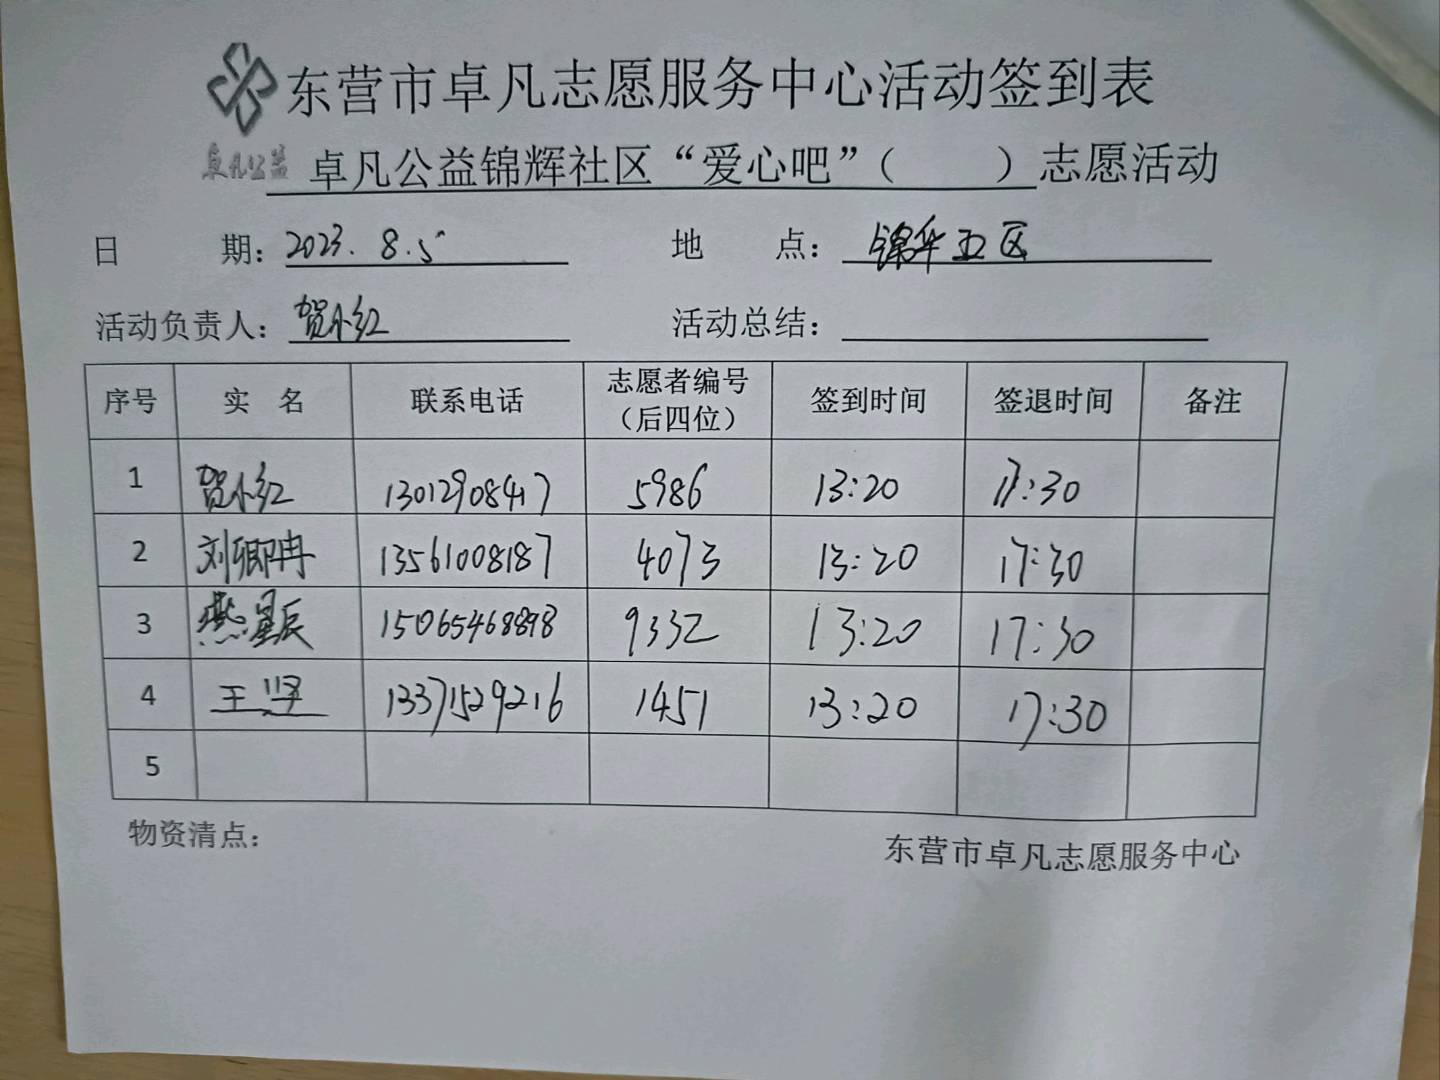 东营市卓凡志愿服务中心活动签到表
卓凡公益 卓凡公益锦辉社区“爱心吧”（ ）志愿活动
日 期：2023.8.5 地 点：锦华五区
活动负责人：贺小红 活动总结：
序号 实 名 联系电话 志愿者编号（后四位） 签到时间 签退时间 备注
1 贺小红 13012908417 5986 13:20 17:30
2 刘卿冉 13561008187 4073 13:20 17:30
3 燕星辰 15065468898 9332 13:20 17:30
4 王坚 13371529216 1451 13:20 17:30
5
物资清点：
东营市卓凡志愿服务中心